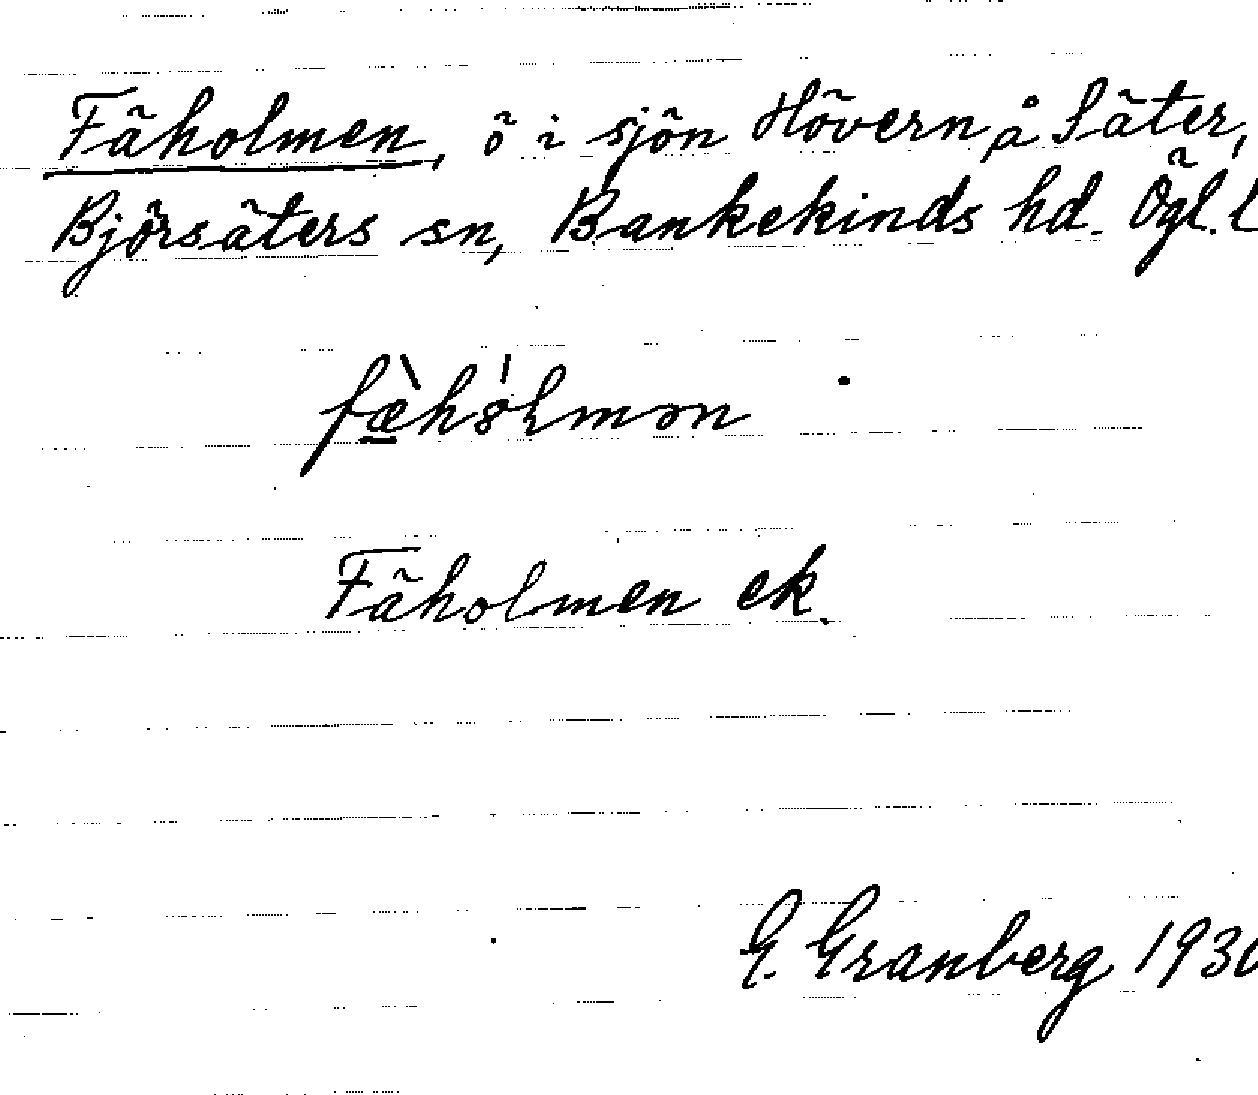 Fäholmen, ö i sjön Hövern å Säter,
Björsäters sn, Bankekinds hd. Ögl. l
fæ̀hólmən
Fäholmen ek.
G. Granberg 1930